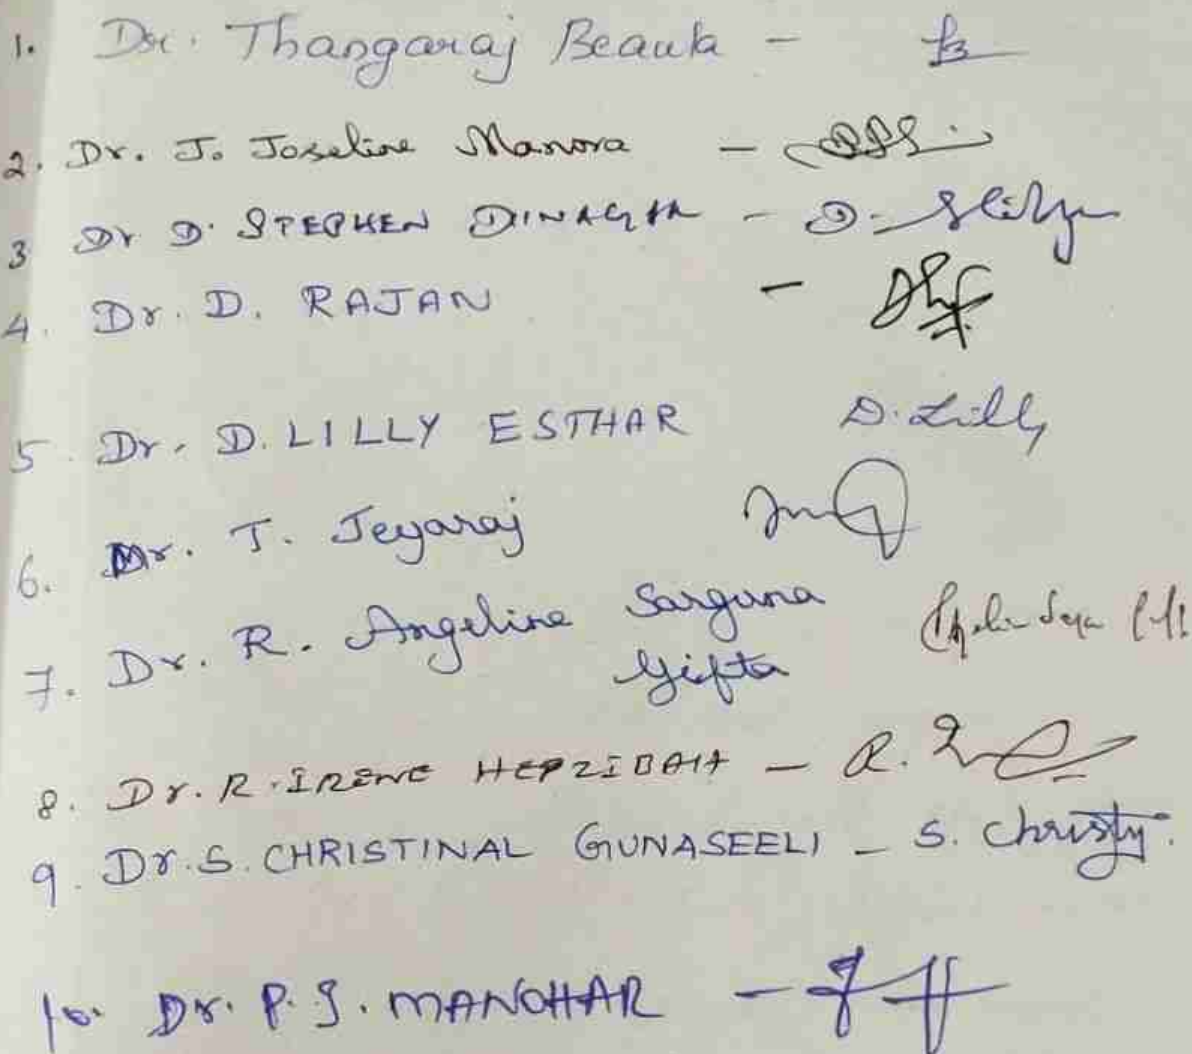 1. Dr. Thangaraj Beaula -
2. Dr. J. Joseline Manora -
3 Dr D. STEPHEN DINAGAR - D.
4. Dr. D. RAJAN -
5. Dr. D. LILLY ESTHAR D. Lilly
6. Mr. T. Jeyaraj
7. Dr. R. Angeline Sarguna
Gifta
8. Dr. R. IRENE HEPZIBAH - R.
9. Dr. S. CHRISTINAL GUNASEELI - S. Christy.
10. Dr. P. J. MANOHAR -